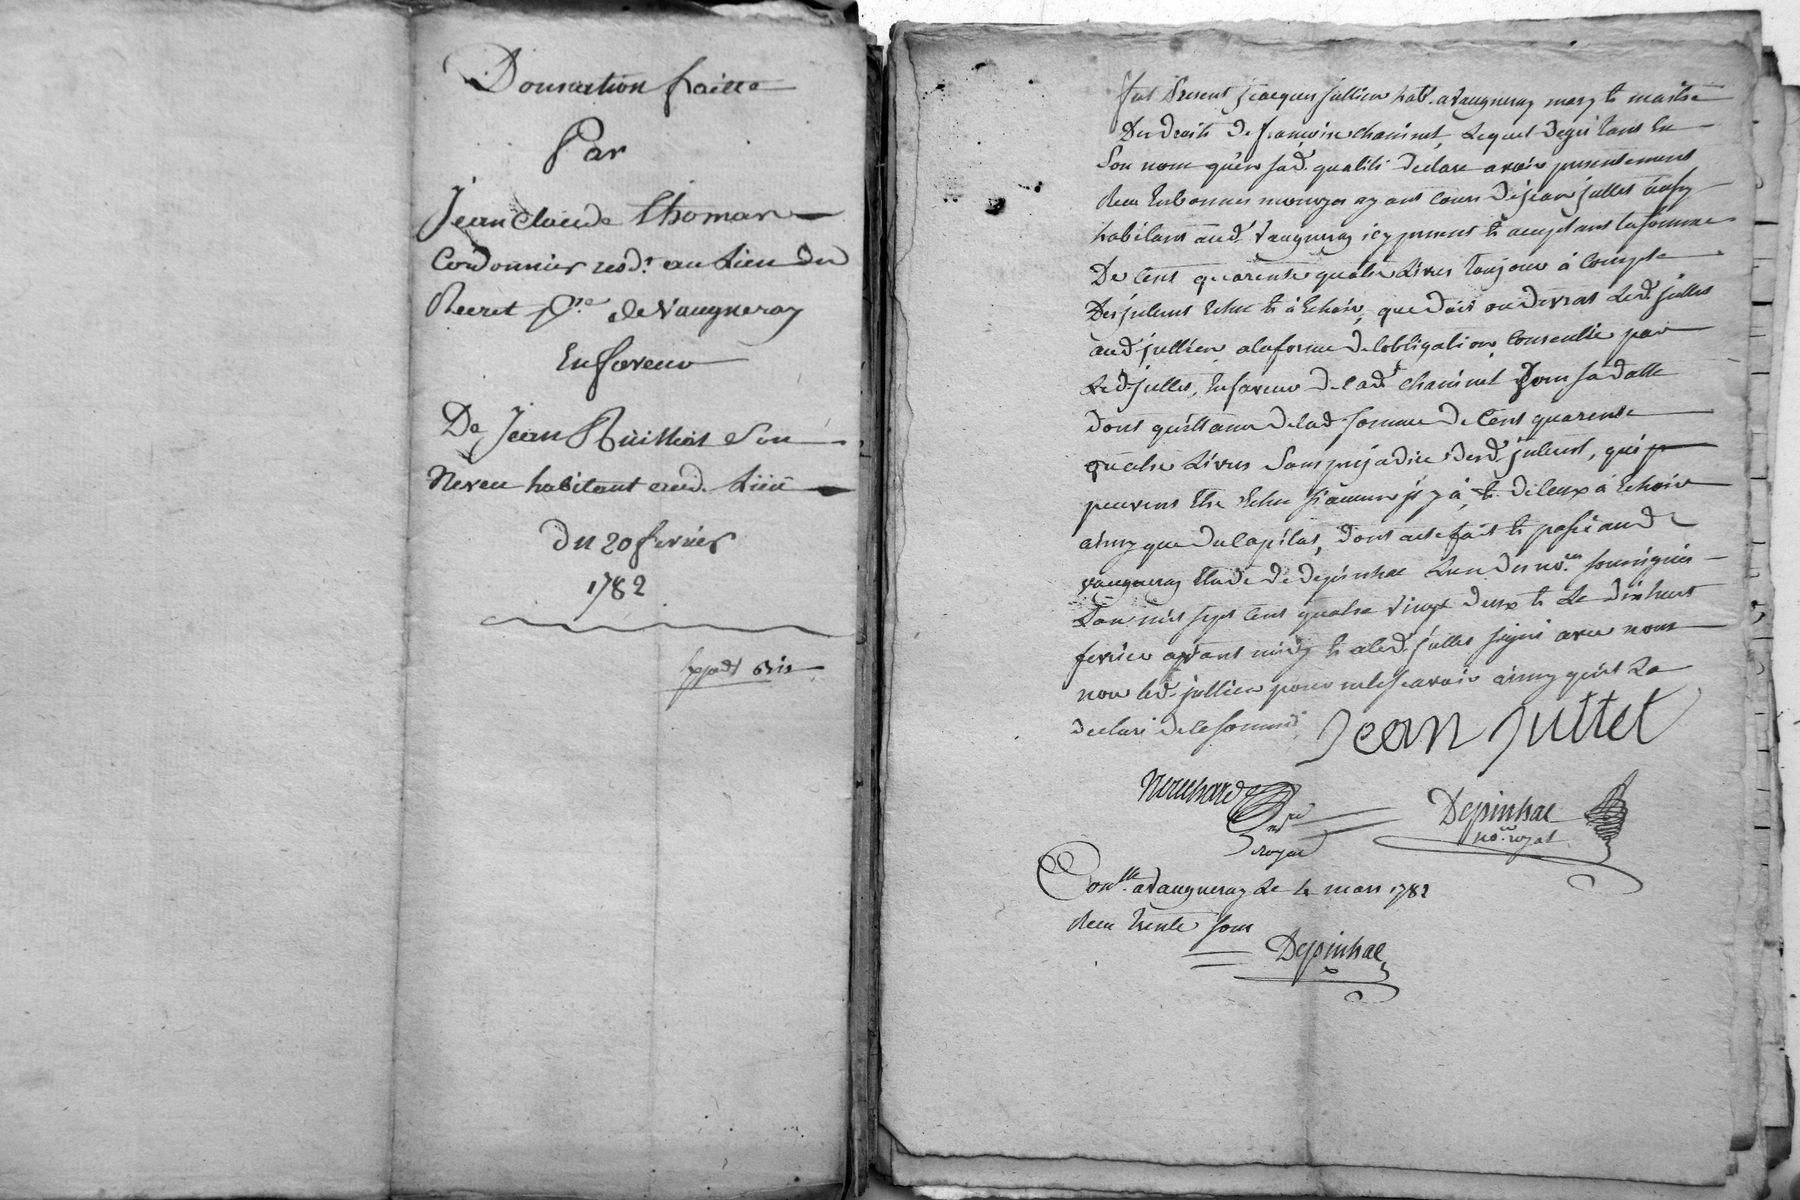 Donnation faitte
Par
Jean Claude Thomas
Cordonnier resdt. au Lieu du
Recret psse. de Vaugneray
En faveur
De Jean Ruilliat Son
Neveu habitant aud. Lieu
du 20 fevrier
1782
Fut Present jacques jullien habt. a Vaugneray mary et maitre
Des droits de françoise chaninet, Lequel degré tant En
Son nom qu'en sad. qualité declare avoir presentement
Receu En bonnes monoyes ayant Cours de jean jullet aussy
habitant aud. Vaugneray icy present et aceptant la somme
De Cent quarente quatre Livres toujour à Compte
Des jnterets Echu et à Echoir, que doit ou devrat Led. jullet
aud jullien a la forme de lobligation Consentie par
Led. jullet, En faveur de lade. chaninet pour sa dotte
dont quittance de lad. somme de Cent quarente
quatre Livres Sans prejudice desd. jnterets, qui p
peuvent Etre Echu si aucun jl y à, et de Ceux à Echoir
ainsy que du Capital, dont acte fait et passé aud.
Vaugneray Etude de depinhac Lun des nores. soussignés
Lan mil sept Cent quatre vingt deux et Le dix huit
fevrier avant midy et a led. jullet signé avec nous
non led. jullien pour ne le sçavoir ainsy qu'il La
declaré de ce sommé
Jean jullet
royal
Depinhac
nore. royal
Conllé. a Vaugneray Le 1er mars 1782
Receu trente sous
Depinhac